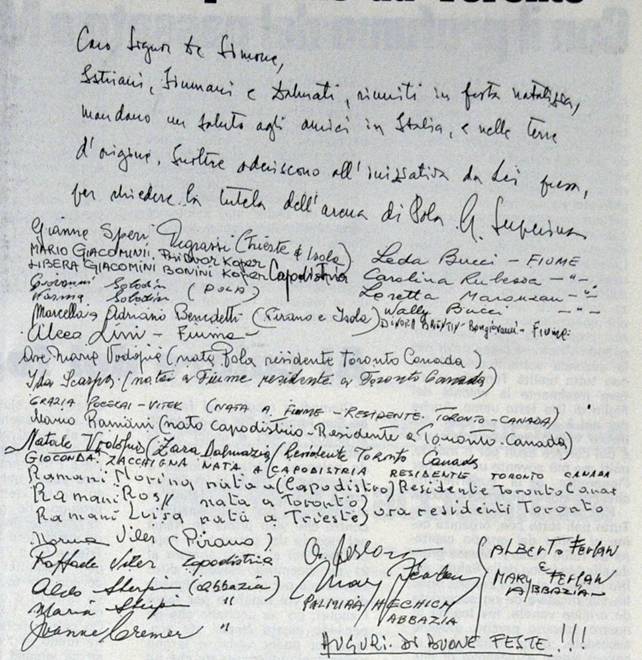 Caro Signor De Simone,
Istriani, Fiumani e Dalmati, riuniti in festa natalizia,
mandano un saluto agli amici in Italia, e nelle terre
d'origine. Inoltre aderiscono all'iniziativa da Lei presa,
per chiedere la tutela dell'arena di Pola. G.
Gianna Speri Negrassi (Trieste & Isola)
MARIO GIACOMINI, Koper
LIBERA GIACOMINI BONINI Koper Capodistria
Leda Bucci - FIUME
Giovanni Solodin (POLA)
Carolina Rubessa - " -
Norma Solodin
Loretta Maranzan - " -
Marcella & Adriano Benedetti (Pirano e Isola)
Wally Bucci - " -
Alceo Lini - Fiume -
DINORA Bongiovanni - FIUME.
Maria Vodopia (nata Pola residente Toronto Canada)
Ida Scarpa (nata a Fiume residente a Toronto Canada)
GRAZIA POCEKAI-VITEK (NATA A FIUME - RESIDENTE. TORONTO-CANADA)
Mario Ramani (nato capodistria - Residente a Toronto. Canada)
Natale (Zara Dalmazia) Residente Toronto Canada
GIOCONDA. ZACCHIGNA NATA A CAPODISTRIA RESIDENTE TORONTO CANADA
Ramani Norina nata a (Capodistro) Residente Toronto Canad
Ramani Rosy nata a Toronto)
Ramani Luisa nata a Trieste) ora residenti Toronto
Norma Viler (Pirano)
Raffaele Viler Capodistria
Aldo Sterpin (Abbazia)
Maria Sterpin "
Joanne Cremer "
Mary Ferlan
PALMIRA HECHICH
ABBAZIA
ALBERTO FERLAN
E
MARY FERLAN
ABBAZIA
AUGURI. DI BUONE FESTE!!!